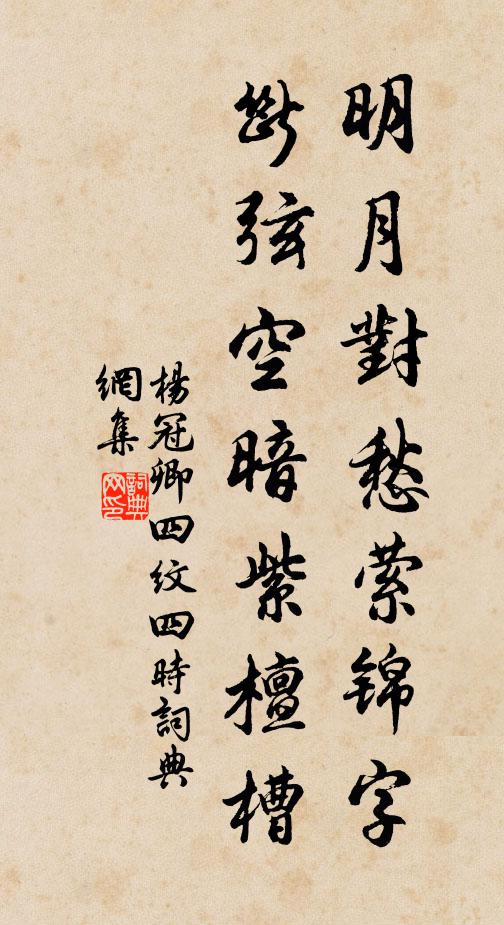 明月對愁縈錦字
斷弦空暗紫檀槽
楊冠卿四紋四時詞典
網集
詞典網印